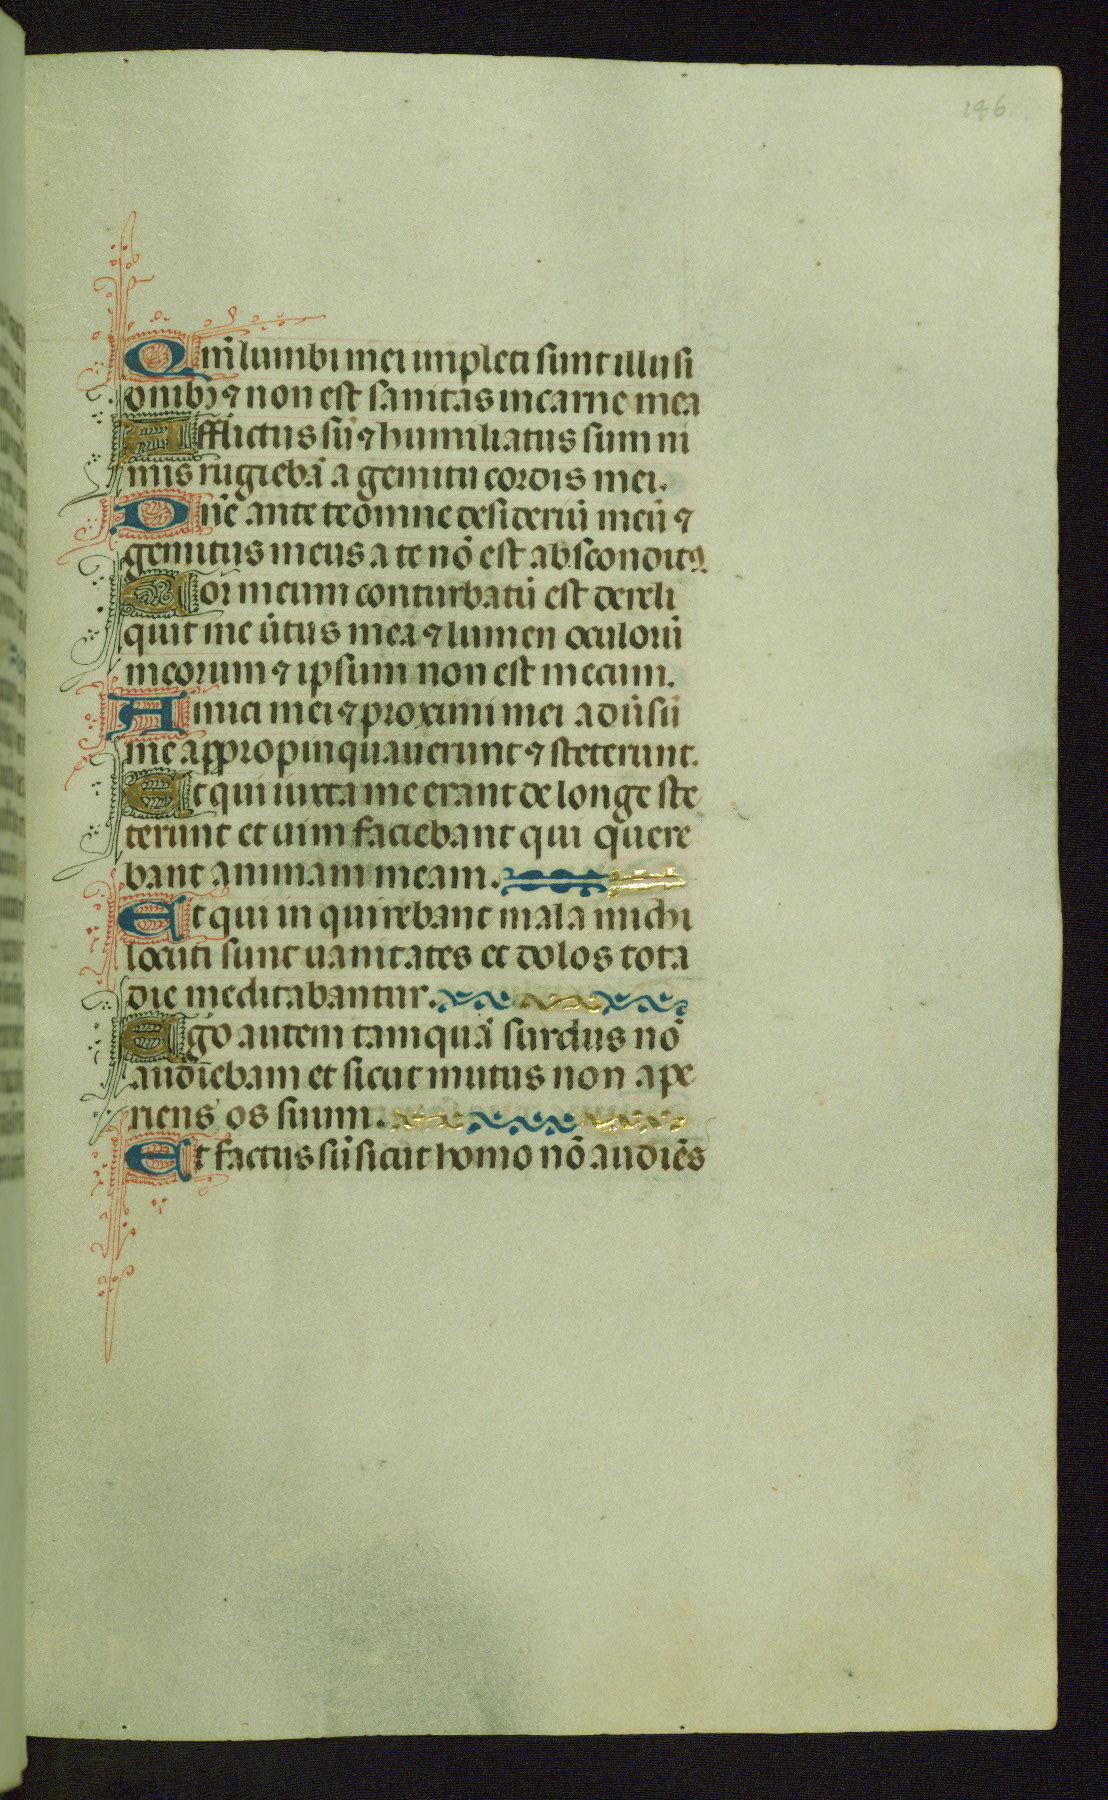 146
Qm̄ lumbi mei impleti sunt illusi
onibꝫ ⁊ non est sanitas in carne mea
Afflictus sū ⁊ humiliatus sum ni
mis rugiebā a gemitu cordis mei.
Dn̄e ante te omne desideriū meū ⁊
gemitus meus a te nō est absconditꝰ.
Cor meum conturbatū est dereli
quit me ūtus mea ⁊ lumen oculoꝝ
meorum ⁊ ipsum non est mecum.
Amici mei ⁊ proximi mei adūsū
me appropinquauerunt ⁊ steterunt.
Et qui iuxta me erant de longe ste
terunt et uim faciebant qui quere
bant animam meam.
Et qui in quirebant mala michi
locuti sunt uanitates et dolos tota
die meditabantur.
Ego autem tamquā surdus nō
audiebam et sicut mutus non ape
riens os suum.
Et factus sū sicut homo nō audiēs